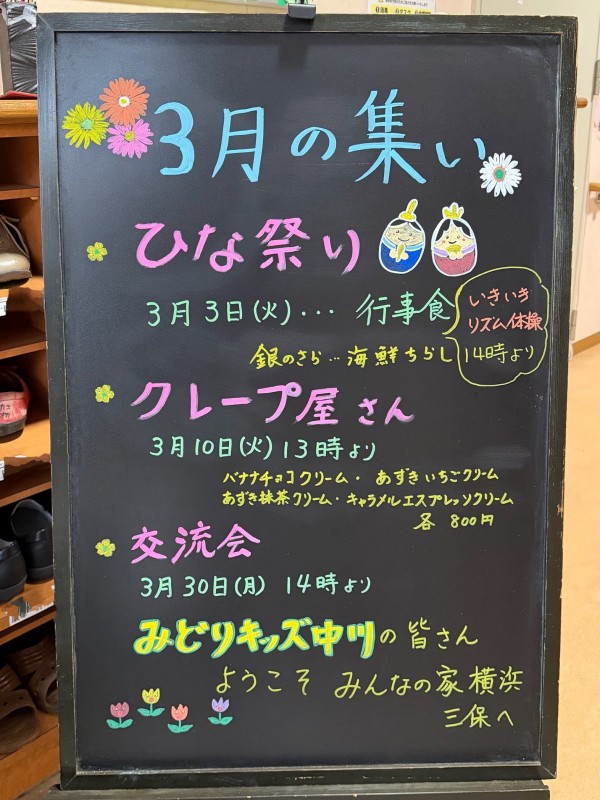 3月の集い
ひな祭り
3月3日(火)... 行事食
銀のさら...海鮮ちらし
いきいき
リズム体操
14時より
クレープ屋さん
3月10日(火)13時より
バナナチョコクリーム・あずきいちごクリーム
あずき抹茶クリーム・キャラメルエスプレッソクリーム
各 800円
交流会
3月30日(月) 14時より
みどりキッズ中川の皆さん
ようこそ みんなの家横浜
三保へ